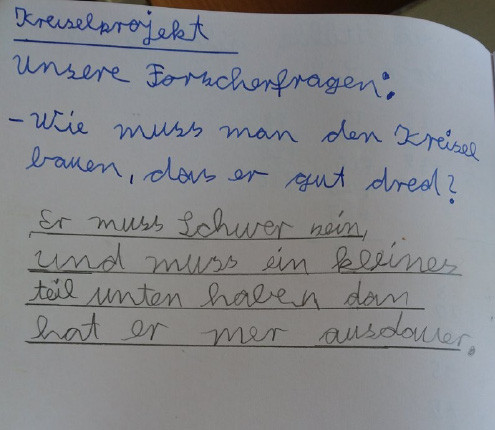 Kreiselprojekt
Unsere Forscherfragen:
- Wie muss man den Kreisel
bauen, das er gut dred?
Er muss Schwer sein,
und muss ein kleines
teil unten haben dan
hat er mer ausdauer.